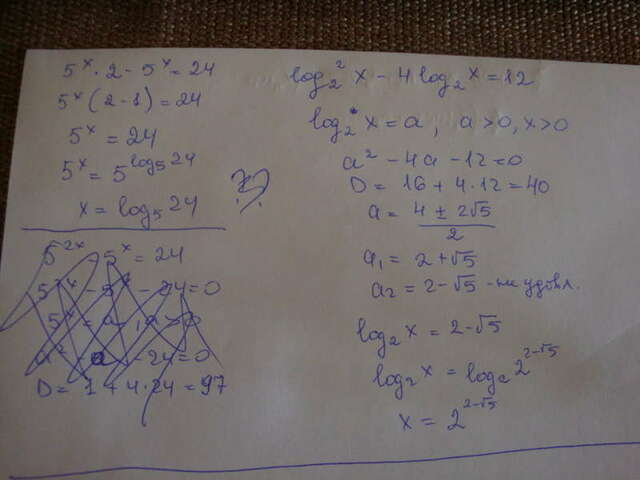 5^x · 2 - 5^x = 24
5^x (2-1) = 24
5^x = 24
5^x = 5^{log_5 24}
x = log_5 24
5^{2x} - 5^x = 24
- 24 = 0
- 24 = 0
D = 1 + 4·24 = 97
log_2^2 x - 4 log_2 x = 12
log_2 x = a, a>0, x>0
a^2 - 4a - 12 = 0
D = 16 + 4·12 = 40
a = \frac{4 ± 2√5}{2}
a_1 = 2+√5
a_2 = 2-√5 - не удовл.
log_2 x = 2-√5
log_2 x = log_2 2^{2-√5}
x = 2^{2-√5}